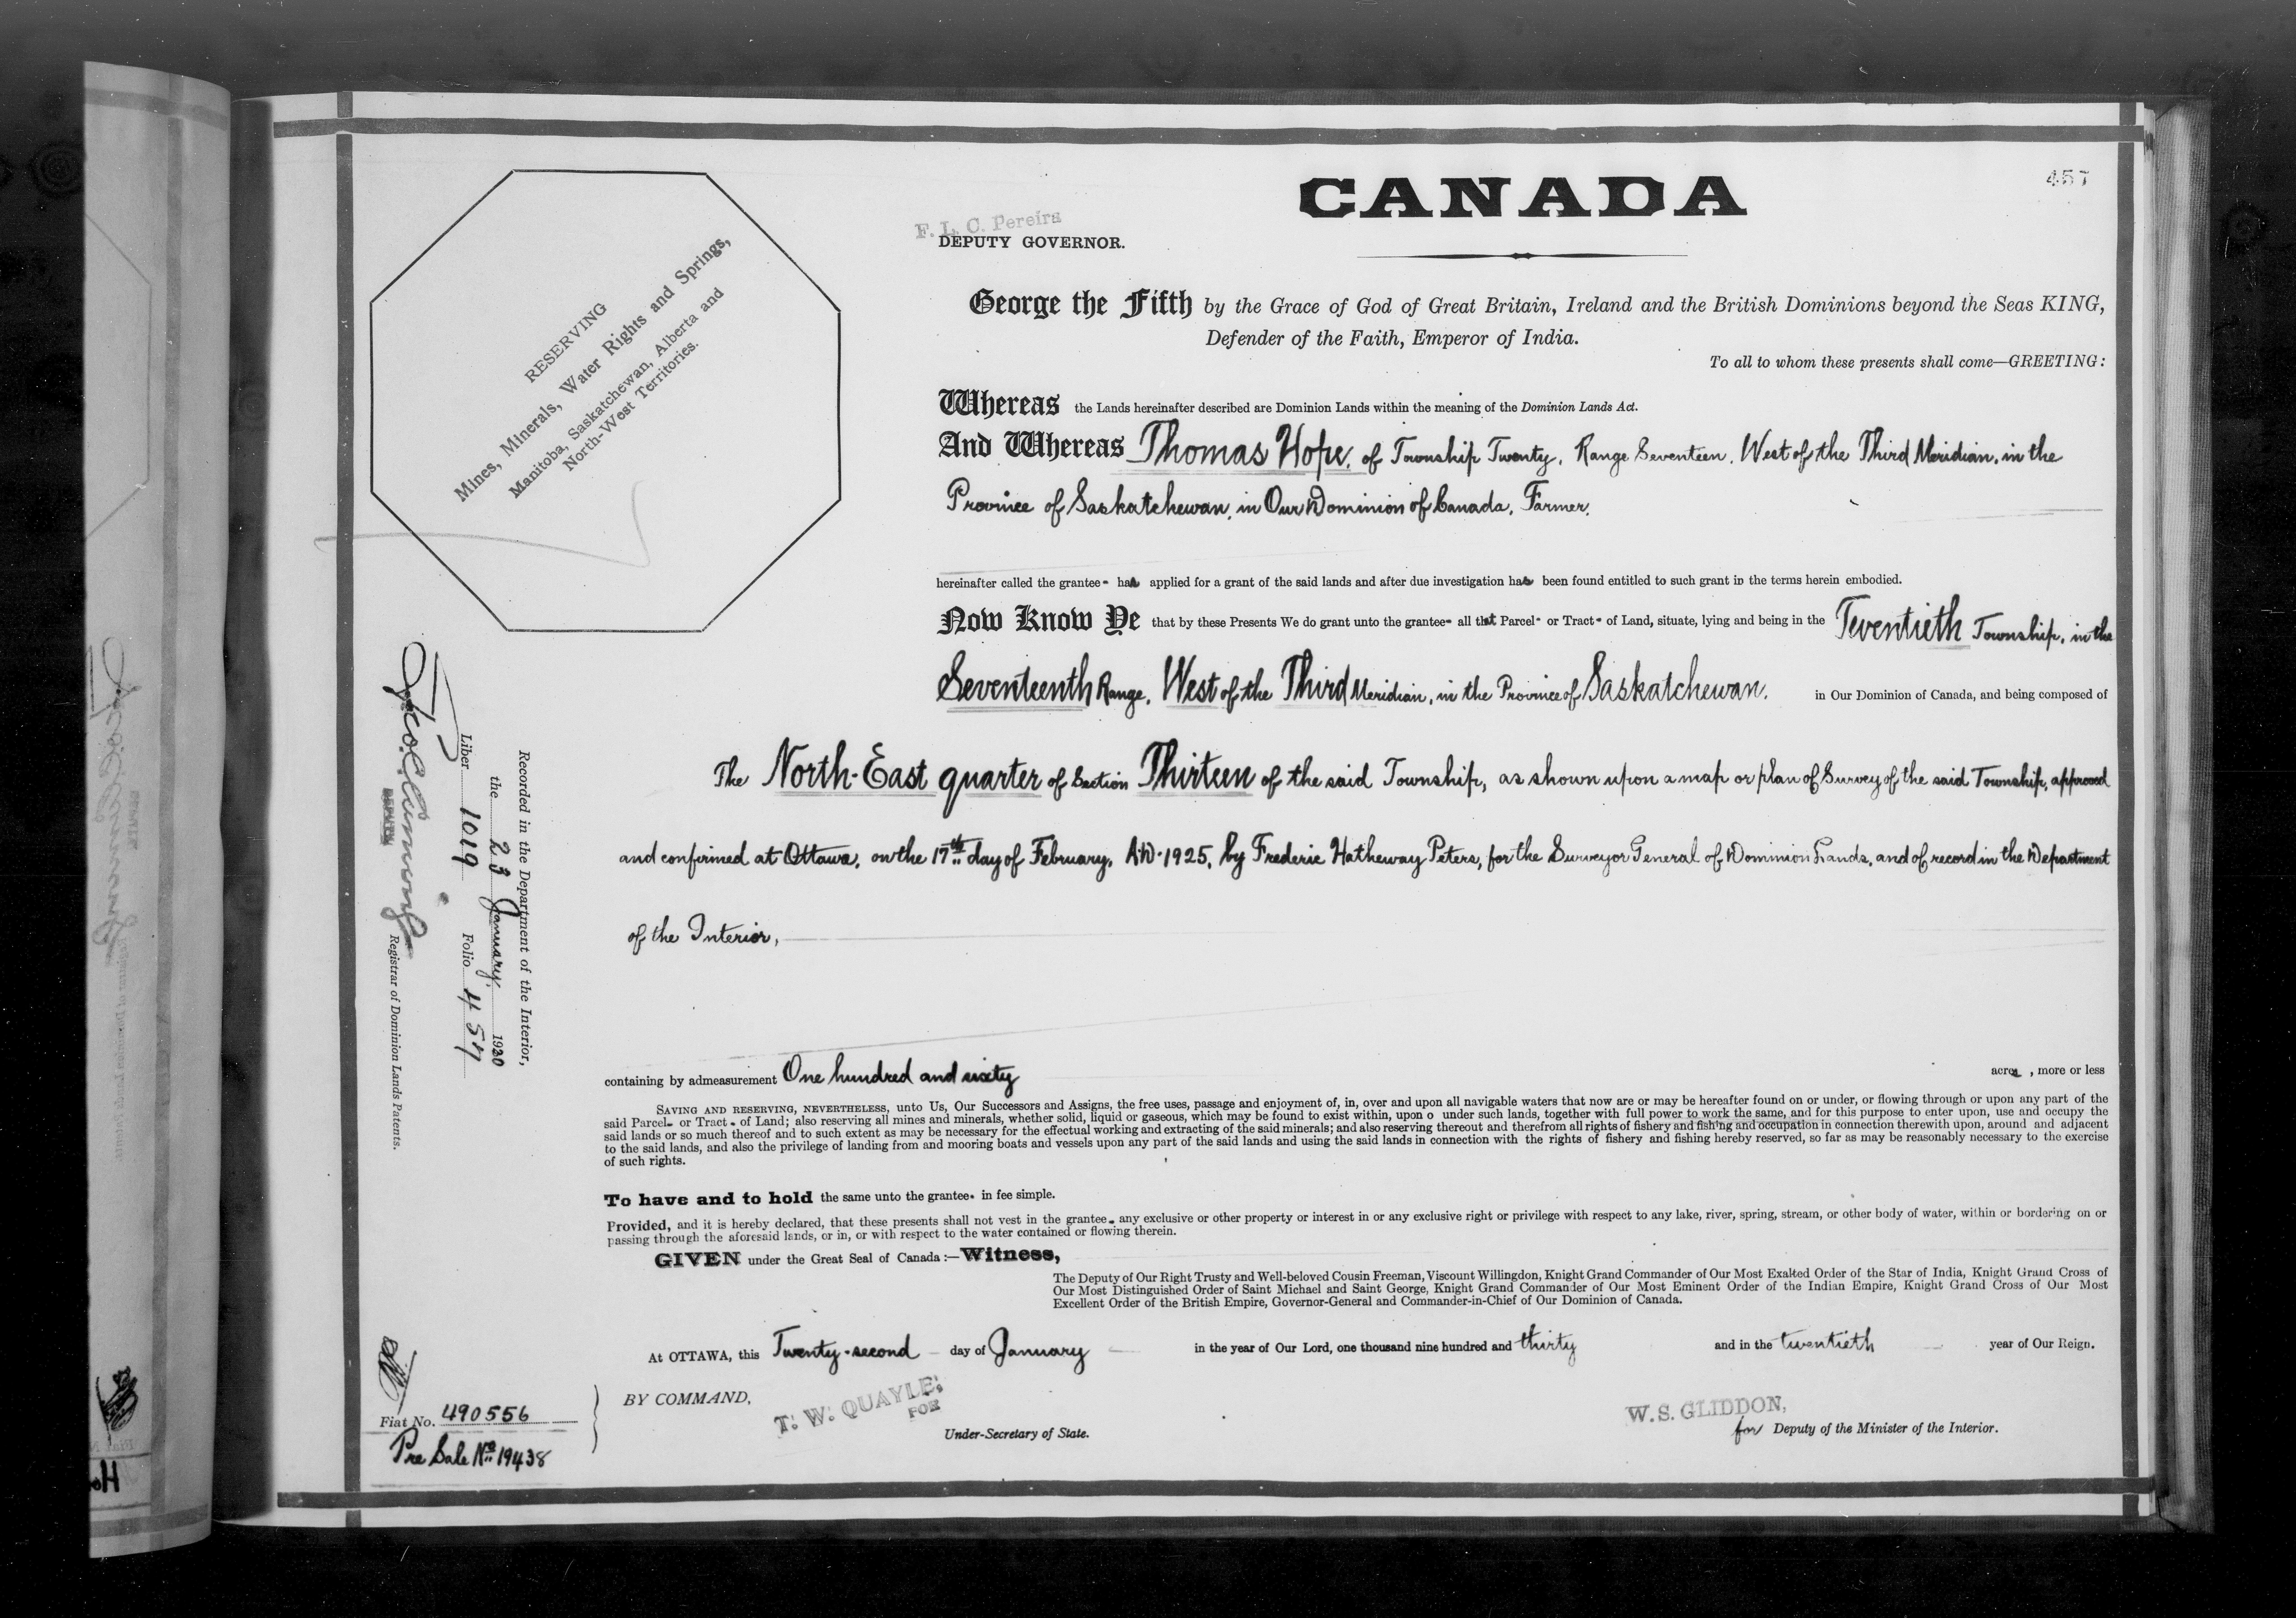 CANADA
457
F. L. C. Pereira
DEPUTY GOVERNOR.
RESERVING
Mines, Minerals, Water Rights and Springs,
Manitoba, Saskatchewan, Alberta and
North-West Territories.
George the Fifth by the Grace of God of Great Britain, Ireland and the British Dominions beyond the Seas KING,
Defender of the Faith, Emperor of India.
To all to whom these presents shall come—GREETING:
Whereas the Lands hereinafter described are Dominion Lands within the meaning of the Dominion Lands Act.
And Whereas Thomas Hope, of Township Twenty, Range Seventeen, West of the Third Meridian, in the
Province of Saskatchewan, in Our Dominion of Canada, Farmer,
hereinafter called the grantee- has applied for a grant of the said lands and after due investigation has been found entitled to such grant in the terms herein embodied.
Now Know Ye that by these Presents We do grant unto the grantee- all that Parcel- or Tract- of Land, situate, lying and being in the Twentieth Township, in the
Seventeenth Range, West of the Third Meridian, in the Province of Saskatchewan, in Our Dominion of Canada, and being composed of
The North-East quarter of Section Thirteen of the said Township, as shown upon a map or plan of Survey of the said Township, approved
and confirmed at Ottawa, on the 17th day of February, A.D. 1925, by Frederic Hatheway Peters, for the Surveyor General of Dominion Lands, and of record in the Department
of the Interior,
containing by admeasurement One hundred and sixty acres, more or less
SAVING AND RESERVING, NEVERTHELESS, unto Us, Our Successors and Assigns, the free uses, passage and enjoyment of, in, over and upon all navigable waters that now are or may be hereafter found on or under, or flowing through or upon any part of the
said Parcel- or Tract- of Land; also reserving all mines and minerals, whether solid, liquid or gaseous, which may be found to exist within, upon o under such lands, together with full power to work the same, and for this purpose to enter upon, use and occupy the
said lands or so much thereof and to such extent as may be necessary for the effectual working and extracting of the said minerals; and also reserving thereout and therefrom all rights of fishery and fishing and occupation in connection therewith upon, around and adjacent
to the said lands, and also the privilege of landing from and mooring boats and vessels upon any part of the said lands and using the said lands in connection with the rights of fishery and fishing hereby reserved, so far as may be reasonably necessary to the exercise
of such rights.
To have and to hold the same unto the grantee- in fee simple.
Provided, and it is hereby declared, that these presents shall not vest in the grantee- any exclusive or other property or interest in or any exclusive right or privilege with respect to any lake, river, spring, stream, or other body of water, within or bordering on or
passing through the aforesaid lands, or in, or with respect to the water contained or flowing therein.
GIVEN under the Great Seal of Canada:—Witness,
The Deputy of Our Right Trusty and Well-beloved Cousin Freeman, Viscount Willingdon, Knight Grand Commander of Our Most Exalted Order of the Star of India, Knight Grand Cross of
Our Most Distinguished Order of Saint Michael and Saint George, Knight Grand Commander of Our Most Eminent Order of the Indian Empire, Knight Grand Cross of Our Most
Excellent Order of the British Empire, Governor-General and Commander-in-Chief of Our Dominion of Canada.
At OTTAWA, this Twenty-second day of January in the year of Our Lord, one thousand nine hundred and thirty and in the twentieth year of Our Reign.
BY COMMAND,
T. W. QUAYLE,
FOR
Under-Secretary of State.
W. S. GLIDDON,
for Deputy of the Minister of the Interior.
Recorded in the Department of the Interior,
the 23 January 1930
Liber 1019 Folio 457
DEPUTY
Registrar of Dominion Lands Patents.
Fiat No. 490556
Pre Sale No. 19438